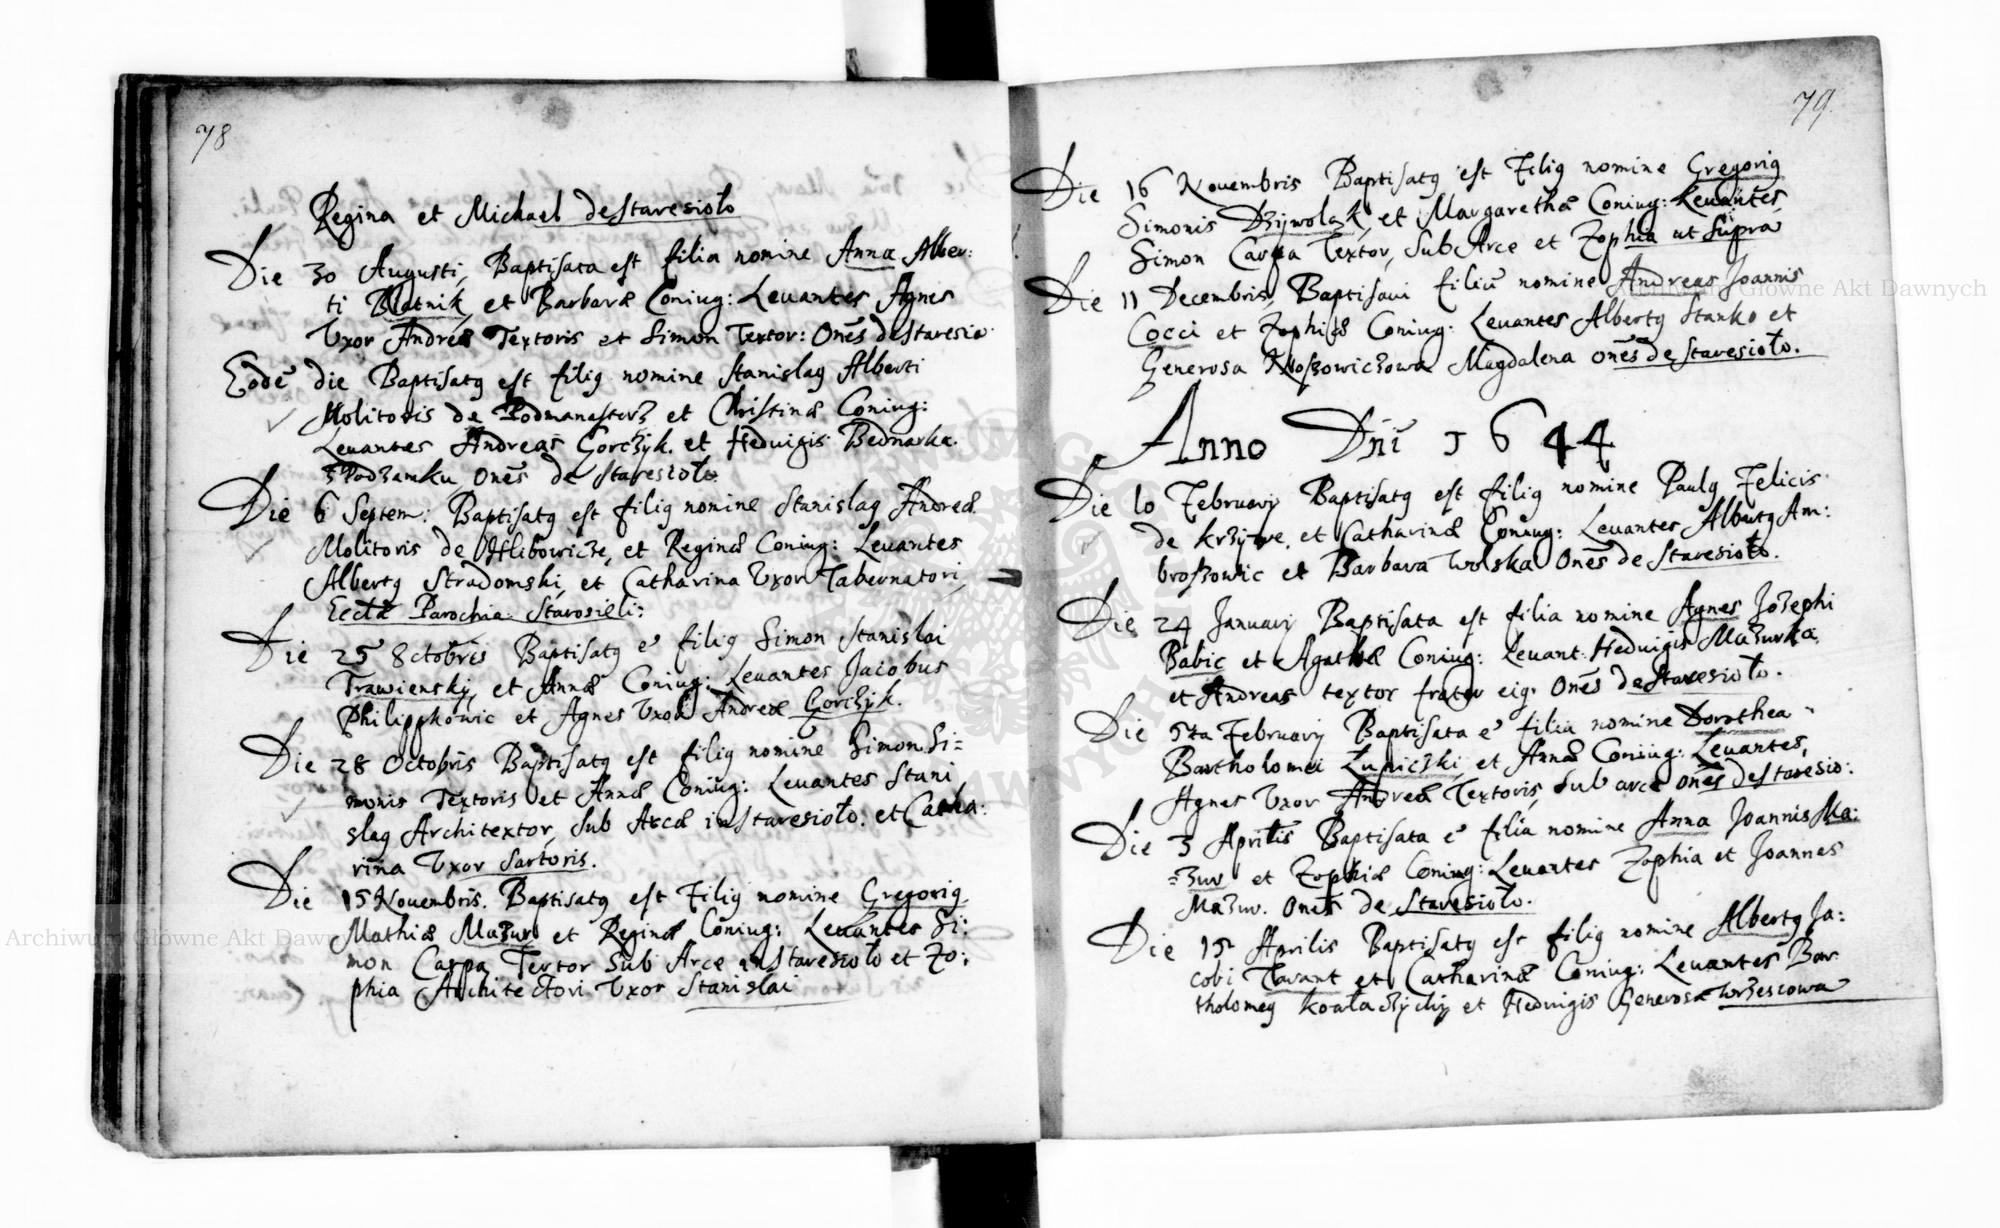 78
Regina et Michael de Staresioło
Die 30 Augusti, Baptisata est filia nomine Anna Alber:
ti Blatnik, et Barbaræ Coniug: Leuantes Agnes
Vxor Andreæ Textoris et Simon Textor: Onēs de Staresio
Eodē die Baptisatꝯ est filiꝯ nomine Stanislaꝯ Alberti
Molitoris de et Christinæ Coniug:
Leuantes Andreas Gorczyk. et Heduigis Bednarka.
z Podzamku Onēs de Staresioło
Die 6 Septem: Baptisatꝯ est filiꝯ nomine Stanislaꝯ Andreæ
Molitoris de Hlibowicze, et Reginæ Coniug: Leuantes
Albertꝯ Stradomski, et Catharina Vxor Tabernatori,
Ecclæ Parochia: Starosieli:
Die 25 8ctobris Baptisatꝯ ē filiꝯ Simon Stanislai
Trawienskj, et Annæ Coniug: Leuantes Jacobus
Philippkowic et Agnes Vxor Andreæ Gorczyk.
Die 28 Octobris Baptisatꝯ est filiꝯ nomine Simon Si=
monis Textoris et Annæ Coniug: Leuantes Stani
slaꝯ Architextor, sub Arce in Staresioło. et Catha:
rina Vxor Sartoris.
Die 15 Nouembris. Baptisatꝯ est Filiꝯ nomine Gregoriꝯ
Mathiæ Mazur et Reginæ Coniug: Leuantes Si:
mon Carpa Textor Sub Arce in Staresioło et Zo:
phia Architectori Vxor Stanislai
79.
Die 16 Nouembris Baptisatꝯ est Filiꝯ nomine Gregoriꝯ
Simonis Dzywolak, et Margarethæ Coniug: Leuantes
Simon Carpa Textor, Sub Arce et Zophia ut Supra
Die 11 Decembris, Baptisaui filiū nomine Andreas Joannis
Cocci et Zophiæ Coniug: Leuantes Albertꝯ Stanko et
Generosa Magdalena onēs de Staresioło.
Anno Dnī 1644
Die 10 Februarij Baptisatꝯ est filiꝯ nomine Paulꝯ Felicis
de Krzywe. et Catharinæ Coniug: Leuantes Albertꝯ Am:
broszowic et Barbara Wolska Onēs de Staresioło.
Die 24 Januarij Baptisata est filia nomine Agnes Jozephi
Babic et Agathæ Coniug: Leuant: Heduigis Mazurka
et Andreas textor frater eiꝯ. Onēs de Staresioło.
Die 5ta Februarij Baptisata ē filia nomine Dorothea
Bartholomei Lupiczki, et Annæ Coniug: Leuantes,
Agnes Vxor Andreæ Textoris, Sub arce onēs de Staresio:
Die 3 Aprilis Baptisata ē filia nomine Anna Joannis Ma:
=zur et Zophiæ Coniug: Leuantes Zophia et Joannes
Mazur. Onēs de Staresioło.
Die 15 Aprilis Baptisatꝯ est filiꝯ nomine Albertꝯ Ja:
cobi Tarant et Catharinæ Coniug: Leuantes Bar
tholomeꝯ et Heduigis Generosa Wrzescowa
Archiwum Główne Akt Dawnych
Archiwum Główne Akt Dawnych